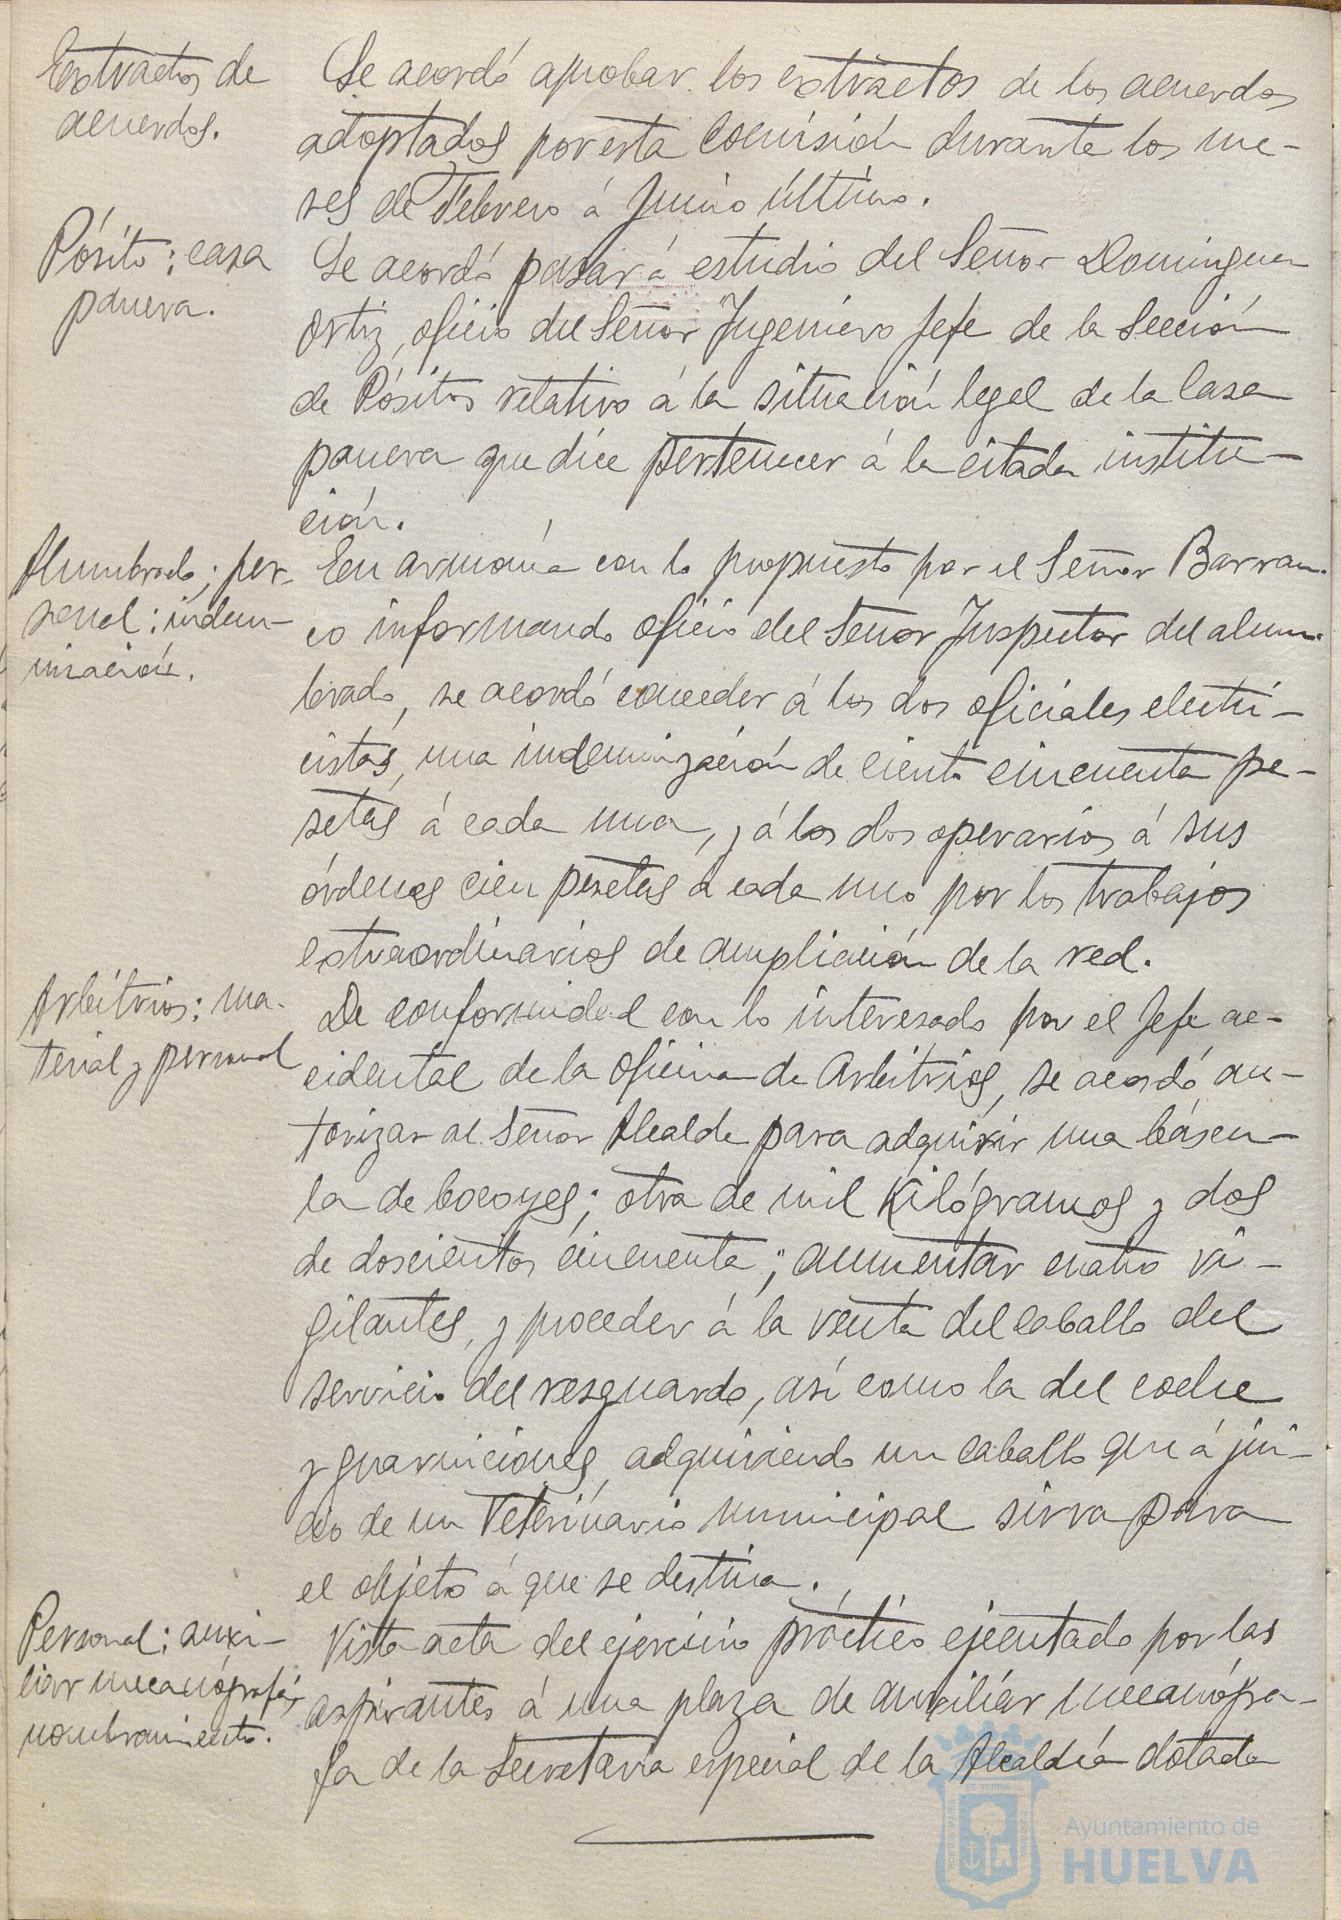 Extractos de
acuerdos.
Se acordó aprobar los extractos de los acuerdos
adoptados por esta Comisión durante los me-
ses de Febrero á Junio último.
Pósito: casa
panera.
Se acordó pasar á estudio del Señor Dominguez
Ortiz, oficio del Señor Ingeniero Jefe de la Sección
de Pósitos relativo á la situación legal de la Casa
panera que dice pertenecer á la citada institu-
ción.
Alumbrado; per-
sonal: indem-
nización.
En armonía con lo propuesto por el Señor Barran-
co informando oficio del Señor Inspector del alum-
brado, se acordó conceder á los dos oficiales electri-
cistas, una indemnización de ciento cincuenta pe-
setas á cada uno, y á los dos operarios á sus
órdenes cien pesetas á cada uno por los trabajos
extraordinarios de ampliación de la red.
Arbitrios: ma-
terial y personal
De conformidad con lo interesado por el Jefe ac-
cidental de la Oficina de Arbitrios, se acordó au-
torizar al Señor Alcalde para adquirir una báscu-
la de bocoyes; otra de mil Kilógramos y dos
de doscientos cincuenta; aumentar cuatro vi-
gilantes, y proceder á la venta del caballo del
servicio del resguardo, así como la del coche
y guarniciones, adquiriendo un caballo que á jui-
cio de un Veterinario municipal sirva para
el objeto á que se destina.
Personal: auxi-
liar mecanógrafa;
nombramiento.
Vista acta del ejercicio práctico ejecutado por las
aspirantes á una plaza de auxiliár mecanógra-
fa de la Secretaría especial de la Alcaldía dotada
Ayuntamiento de
HUELVA